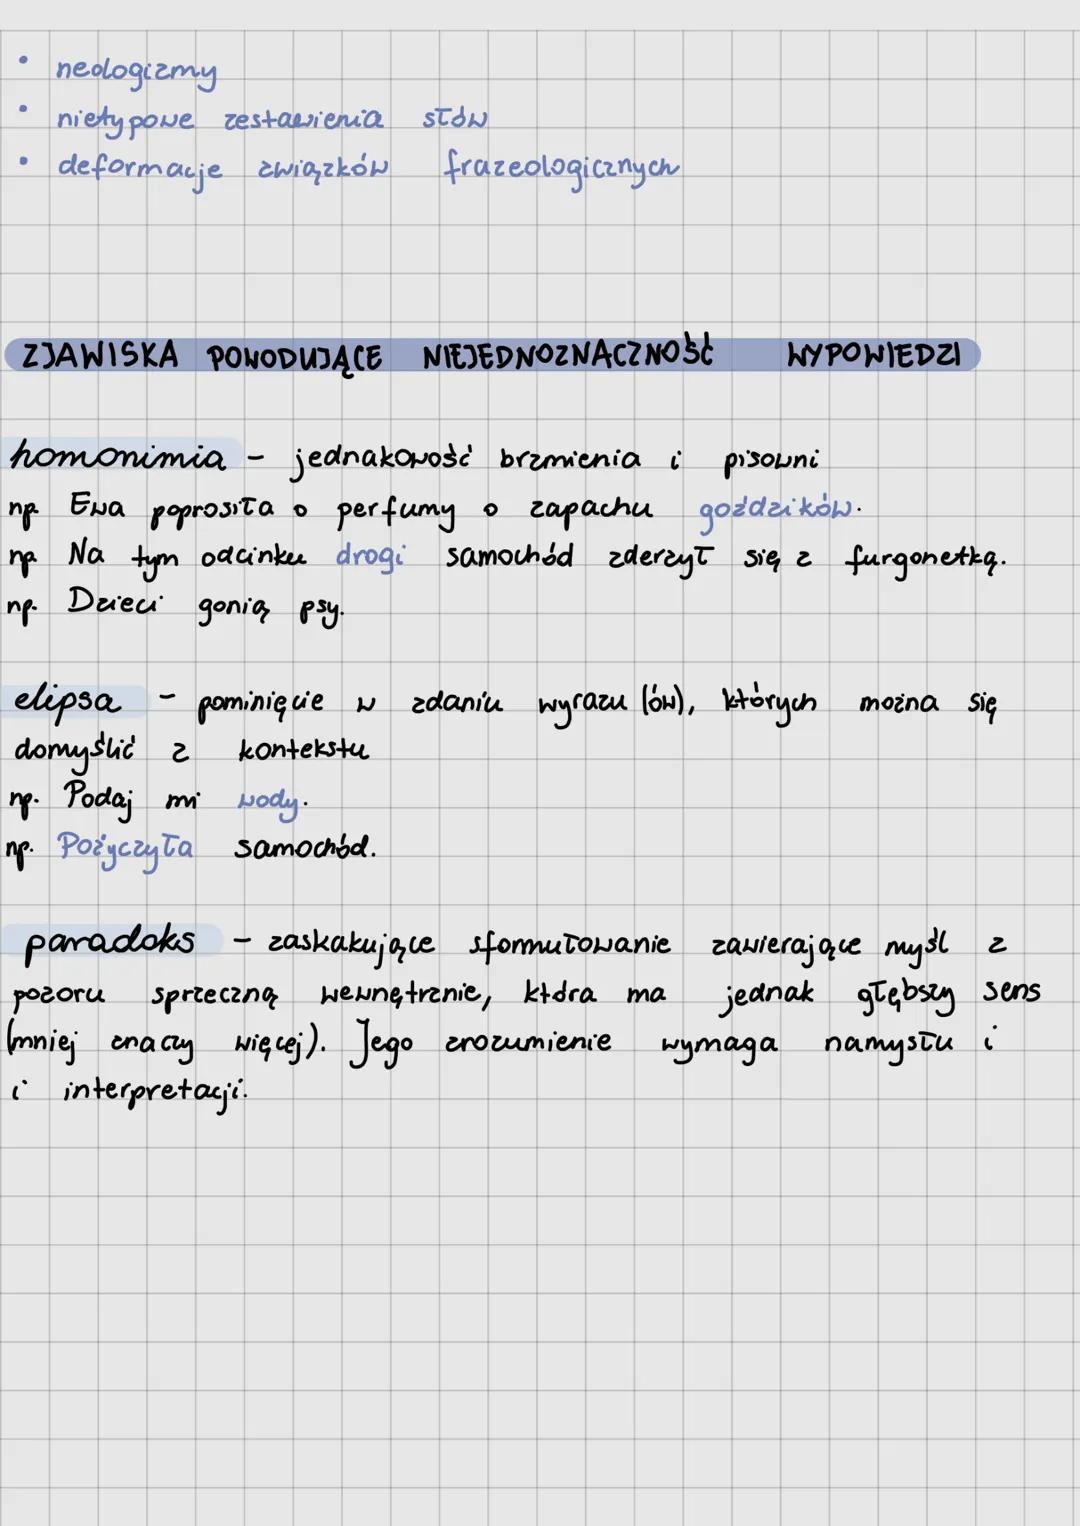 • neologizmy
• nietypowe zestawienia słów
• deformacje związków frazeologicznych
ZJAWISKA POWODUJĄCE NIEJEDNOZNACZNOŚĆ WYPOWIEDZI
homonimia - jednakowość brzmienia i pisowni
np. Ewa poprosiła o perfumy o zapachu goździków.
np. Na tym odcinku drogi samochód zderzył się z furgonetką.
np. Dzieci gonią psy.
elipsa - pominięcie w zdaniu wyrazu (ów), których można się
domyślić z kontekstu
np. Podaj mi wody.
np. Pożyczyła samochód.
paradoks - zaskakujące sformułowanie zawierające myśl z
pozoru sprzeczną wewnętrznie, która ma jednak głębszy sens
(mniej znaczy więcej). Jego zrozumienie wymaga namysłu i
i interpretacji.